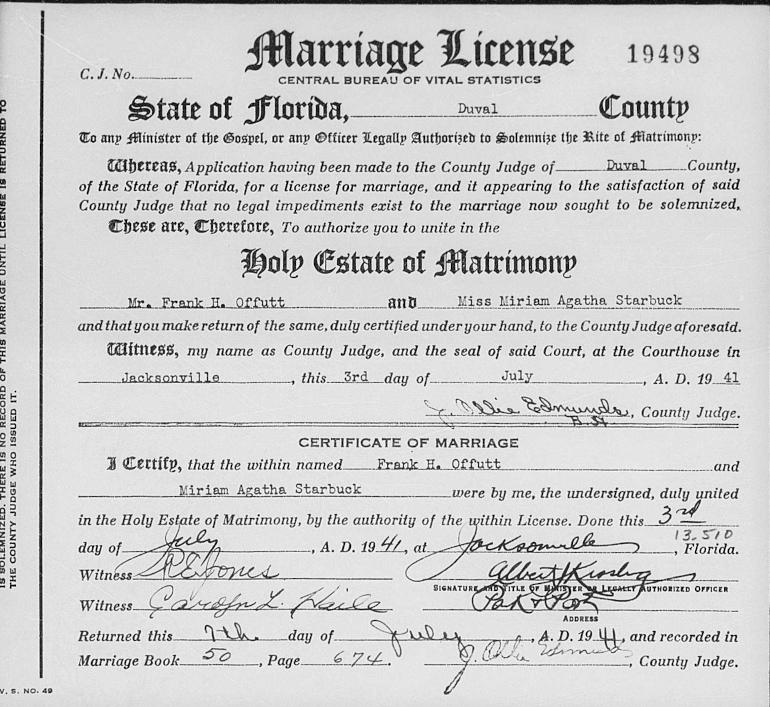 Marriage License 19498
C. J. No.
CENTRAL BUREAU OF VITAL STATISTICS
State of Florida, Duval County
To any Minister of the Gospel, or any Officer Legally Authorized to Solemnize the Rite of Matrimony:
Whereas, Application having been made to the County Judge of Duval County,
of the State of Florida, for a license for marriage, and it appearing to the satisfaction of said
County Judge that no legal impediments exist to the marriage now sought to be solemnized,
These are, Therefore, To authorize you to unite in the
Holy Estate of Matrimony
Mr. Frank H. Offutt and Miss Miriam Agatha Starbuck
and that you make return of the same, duly certified under your hand, to the County Judge aforesaid.
Witness, my name as County Judge, and the seal of said Court, at the Courthouse in
Jacksonville, this 3rd day of July, A. D. 19 41
J. Ollie Edmunds, County Judge.
CERTIFICATE OF MARRIAGE
I Certify, that the within named Frank H. Offutt and
Miriam Agatha Starbuck were by me, the undersigned, duly united
in the Holy Estate of Matrimony, by the authority of the within License. Done this 3rd
13,510
day of July, A. D. 19 41, at Jacksonville, Florida.
Witness R E Jones Albert J
SIGNATURE AND TITLE OF MINISTER OR LEGALLY AUTHORIZED OFFICER
Witness Carolyn L. Haile
ADDRESS
Returned this 7th day of July, A. D. 19 41, and recorded in
Marriage Book 50, Page 674. J. Ollie Edmunds, County Judge.
V. S. NO. 49
IS SOLEMNIZED. THERE IS NO RECORD OF THIS MARRIAGE UNTIL LICENSE IS RETURNED TO
THE COUNTY JUDGE WHO ISSUED IT.